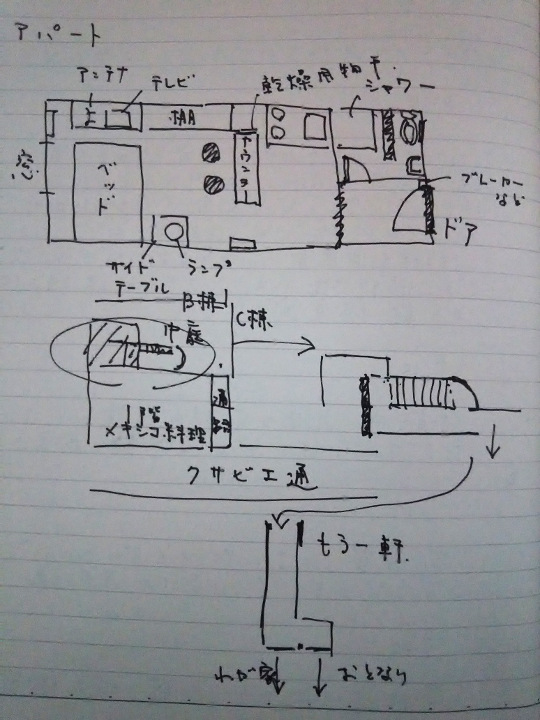 アパート
アンテナ
テレビ
乾燥用物干
シャワー
棚
窓
ベッド
カウンター
ブレーカー
など
ドア
サイド
テーブル
ランプ
B棟
中庭
C棟
1階
メキシコ料理
通路
クサビエ通
もう一軒
わが家
おとなり